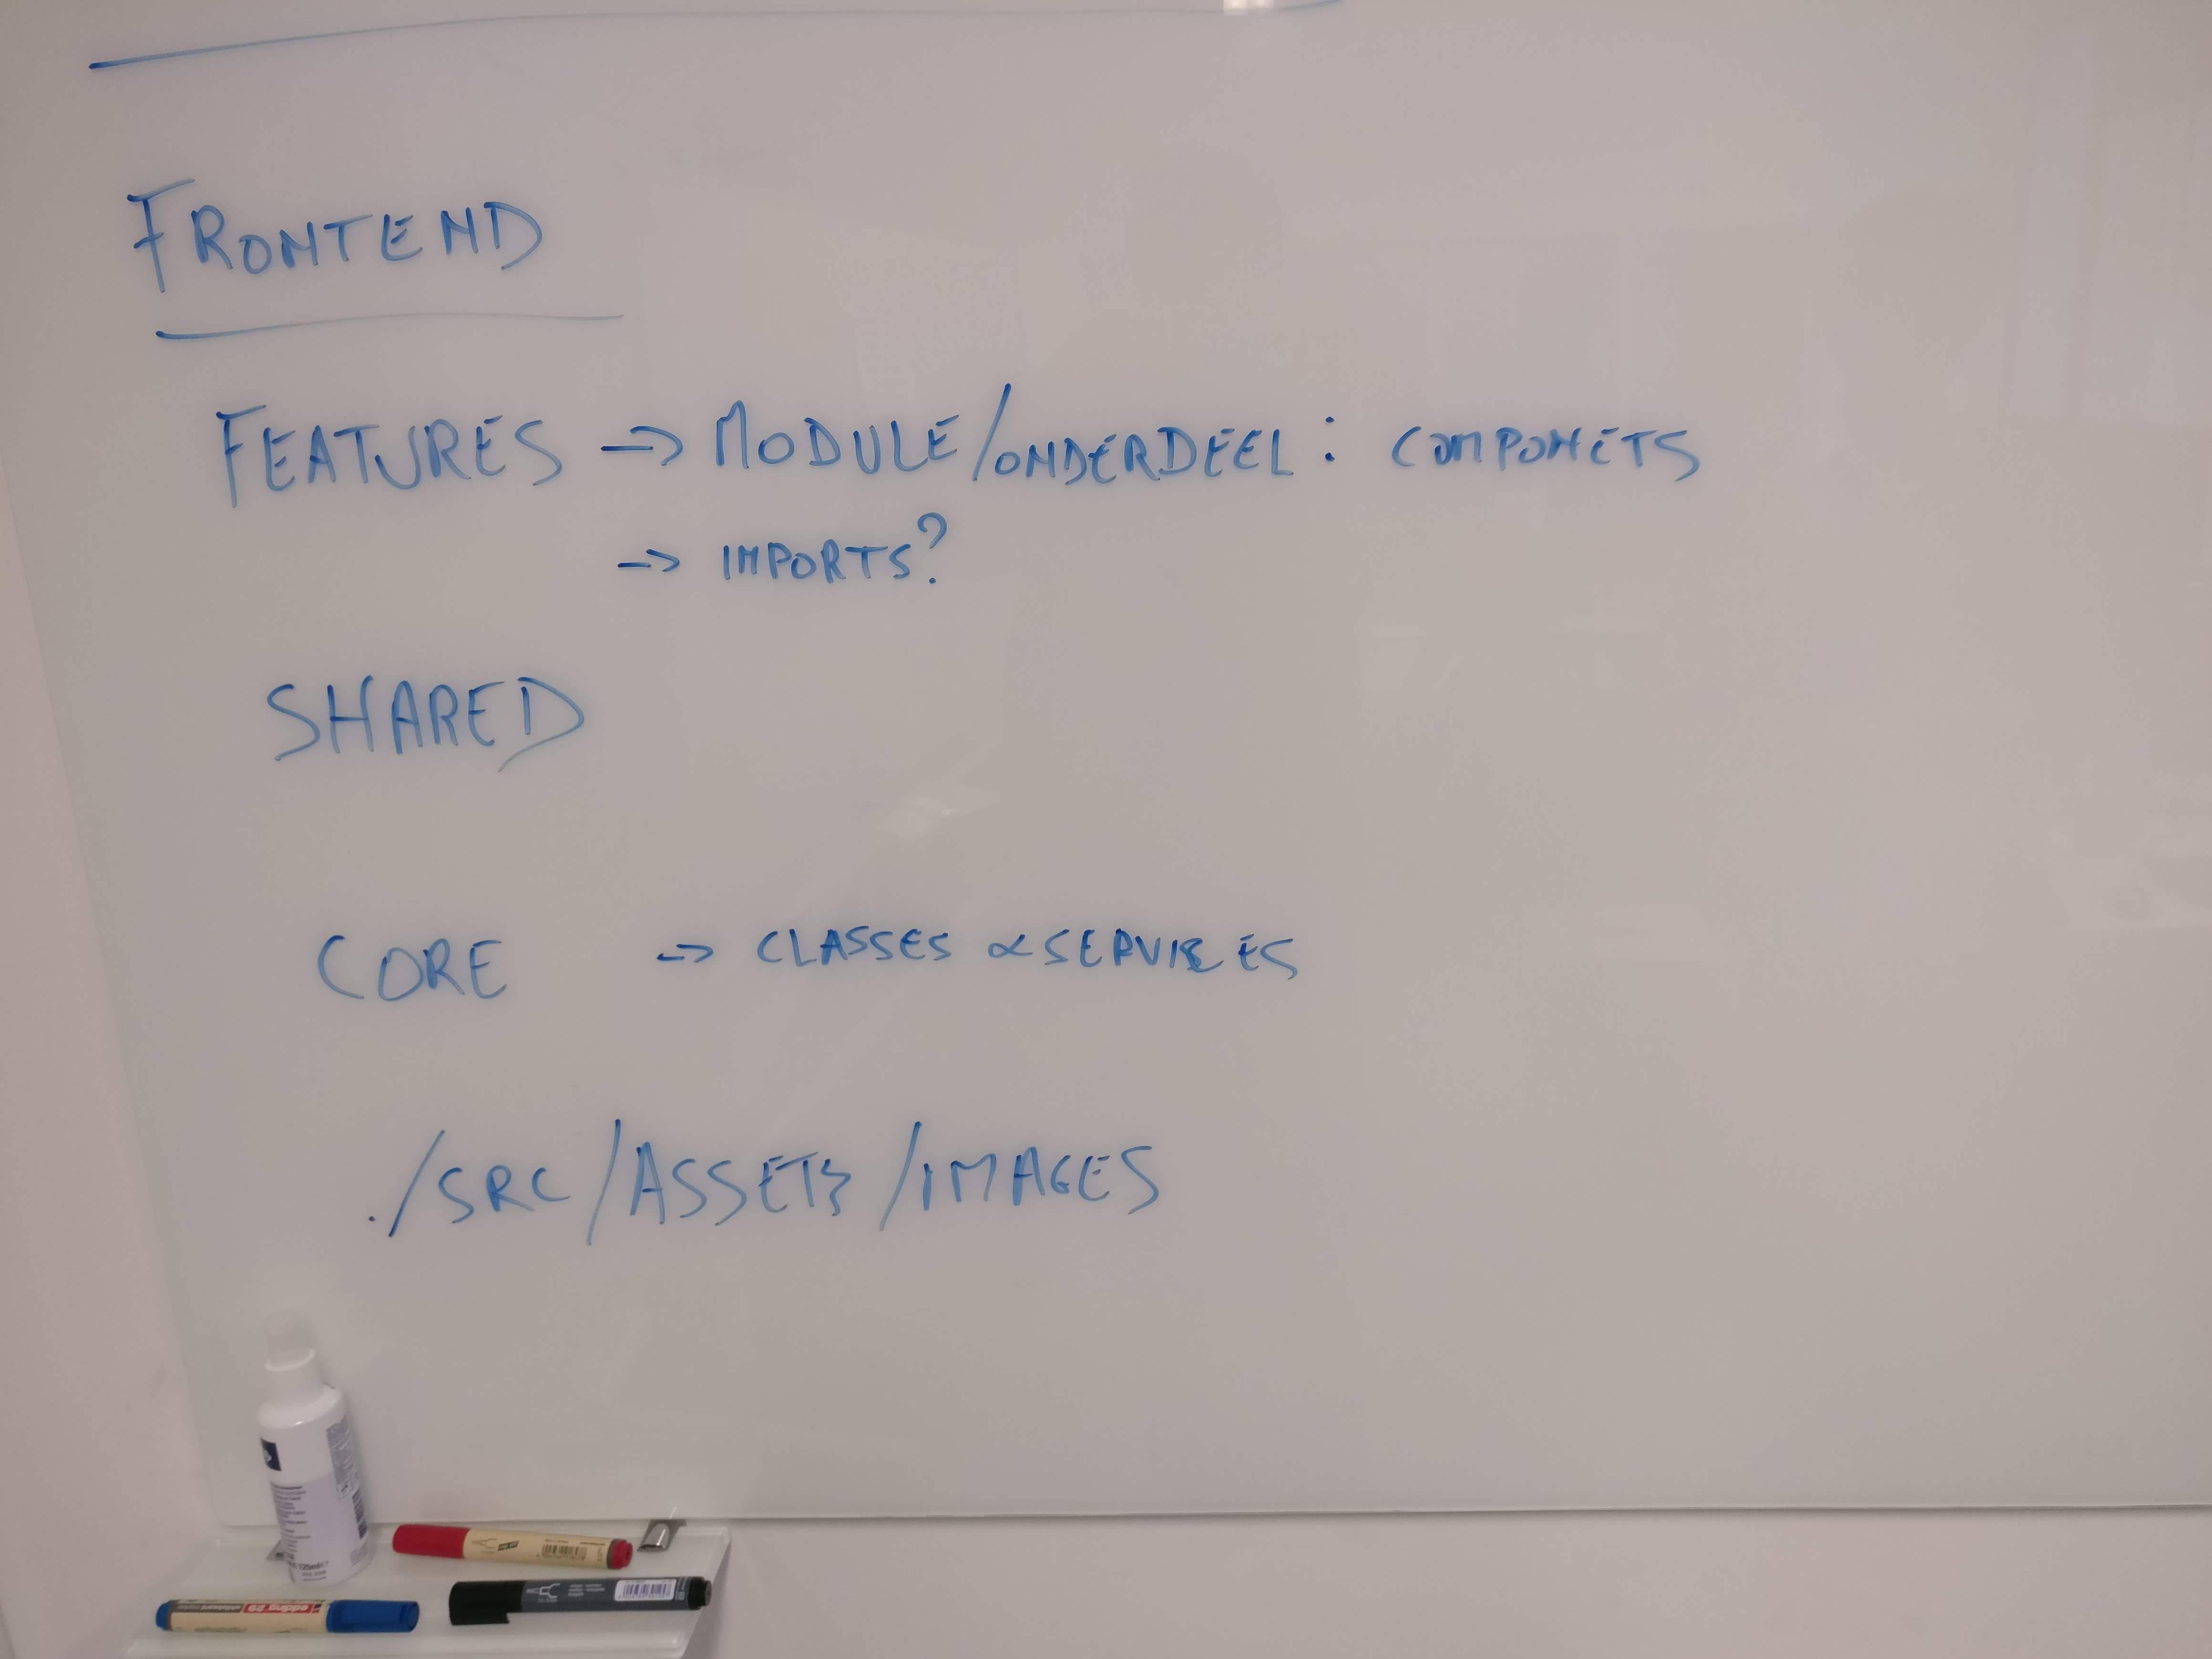 FRONTEND
FEATURES -> MODULE/ONDERDEEL : COMPONETS
-> IMPORTS?
SHARED
CORE -> CLASSES & SERVICES
./SRC/ASSETS/IMAGES
edding 29